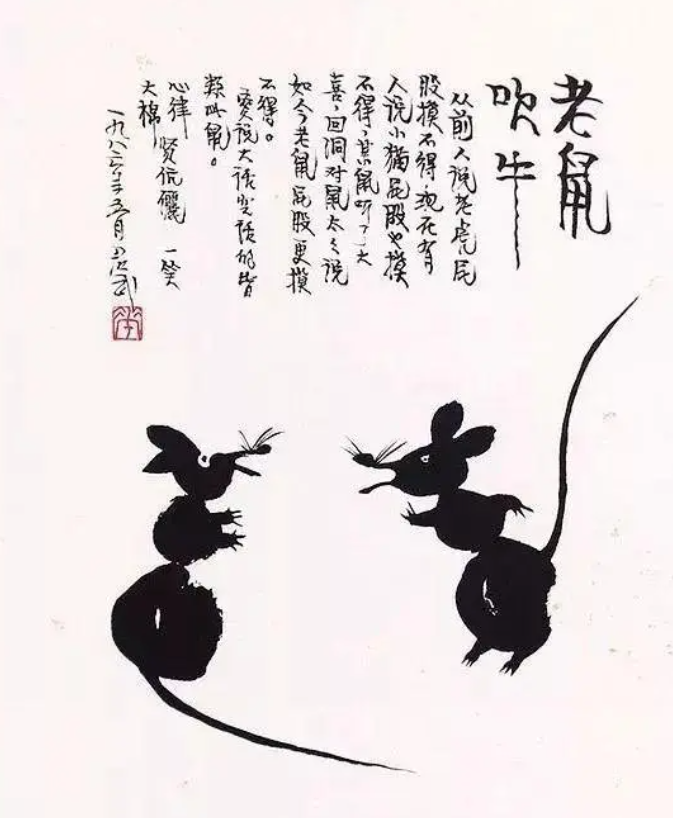 老鼠
吹牛
从前人说老虎屁
股摸不得，现在有
人说小猫屁股也摸
不得，某鼠听了大
喜，回洞对鼠太太说
如今老鼠屁股更摸
不得。
爱说大话空话的皆
类此鼠。
心律 贤伉俪 一笑
大棉
一九八年五月君武